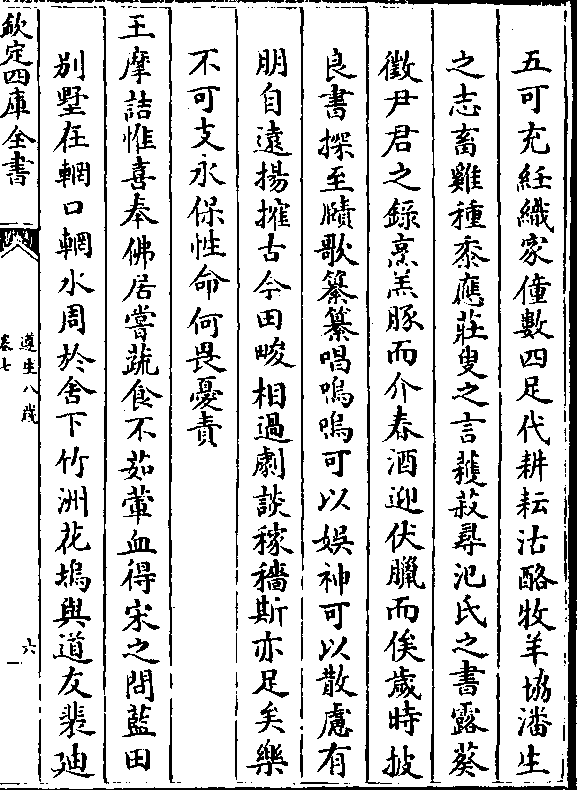 五可充紝織家僮數四足代耕耘沽酪牧羊協潘生
之志畜雞種黍應莊叟之言穫菽尋氾氏之書露葵
徵尹君之錄烹羔豚而介春酒迎伏臘而俟歲時披
良書探至賾歌纂纂唱嗚嗚可以娛神可以散慮有
朋自遠揚搉古今田畯相過劇談稼穡斯亦足矣樂
不可支永保性命何畏憂責
王摩詰惟喜奉佛居嘗蔬食不茹葷血得宋之問藍田
別墅在輞口輞水周於舍下竹洲花塢與道友裴廸
欽定四庫全書
遵生八牋
卷七
六